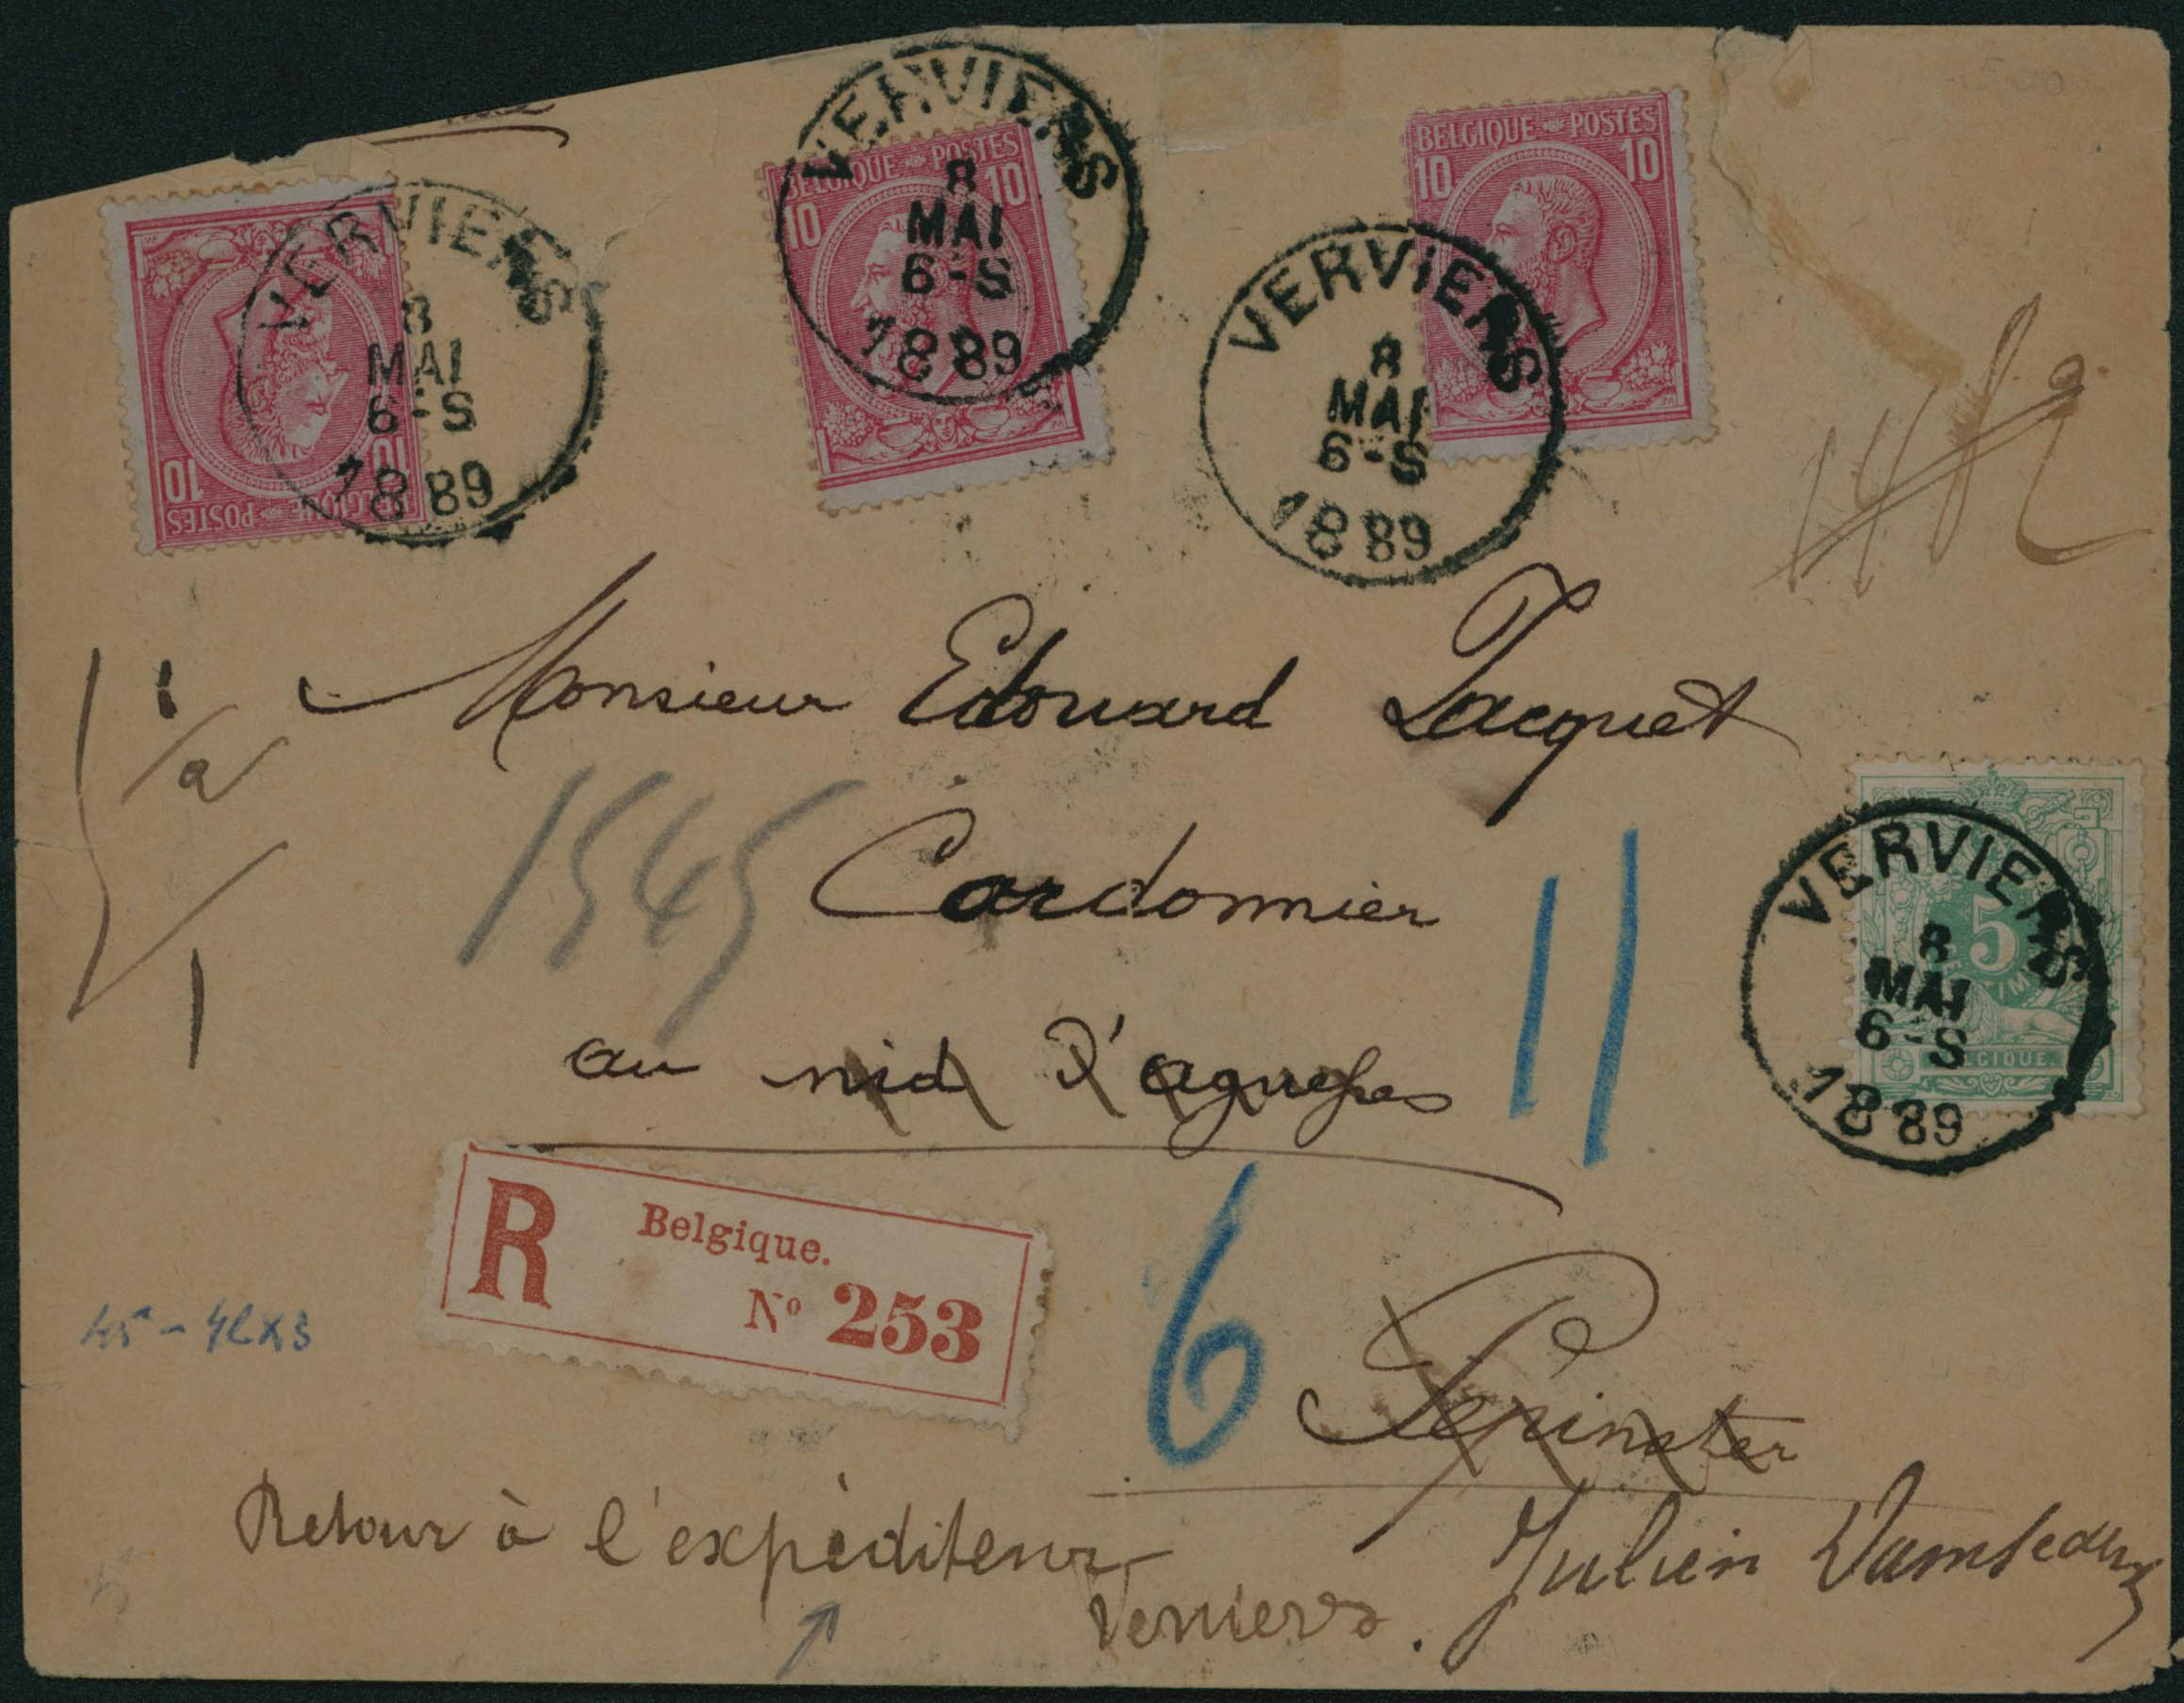 VERVIERS
8
MAI
6-S
1889
BELGIQUE POSTES
10 10
VERVIERS
8
MAI
6-S
1889
BELGIQUE POSTES
10 10
VERVIERS
8
MAI
6-S
1889
BELGIQUE POSTES
10 10
Monsieur Edouard Jacquet
1545
Cordonnier
11
VERVIERS
8
MAI
6-S
1889
5
BELGIQUE
au nid d'aguesses
R Belgique.
Nº 253
6
Pepinster
45-46x3
Retour à l'expéditeur
Julien
Verviers.